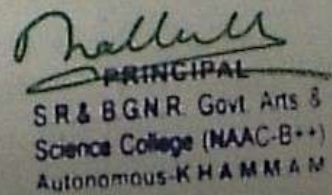 PRINCIPAL
S R & B G N R Govt Arts &
Science College (NAAC-B++)
Autonomous-KHAMMAM